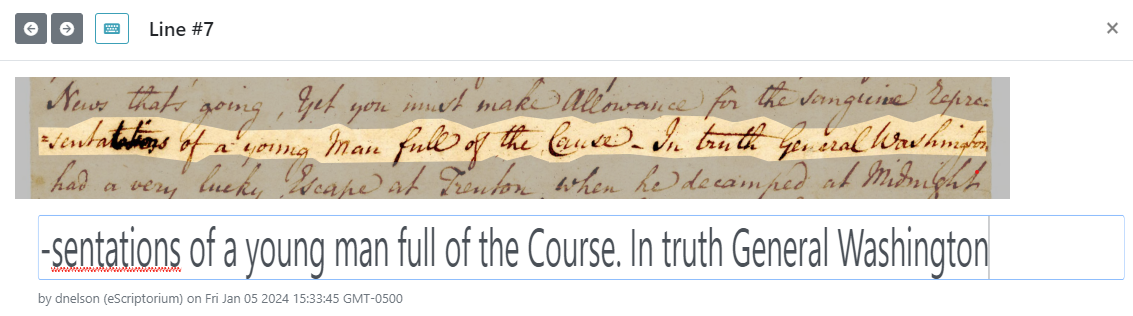 Line #7
News thats going, Yet you must make Allowance for the sanguine Repre=
=sentations of a young Man full of the Cause - In truth General Washington
had a very lucky Escape at Trenton when he decamped at Midnight
-sentations of a young man full of the Course. In truth General Washington
by dnelson (eScriptorium) on Fri Jan 05 2024 15:33:45 GMT-0500